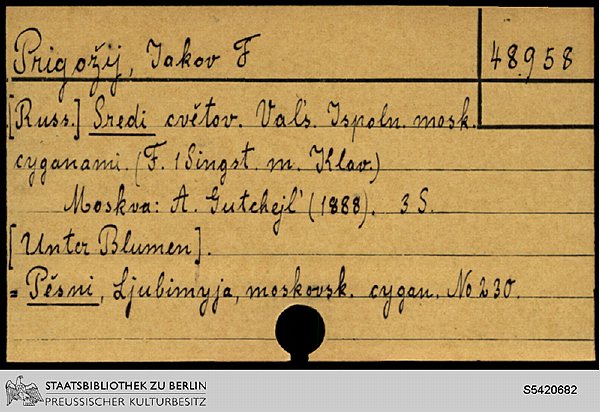 Prigožij, Jakov F
48958
[Russ.] Sredi cvětov. Val's. Ispoln. mosk.
cyganami. (F. 1 Singst. m. Klav.)
Moskva: A. Gutchejl' (1888). 3 S.
[Unter Blumen].
= Pěsni, Ljubimyja, moskovsk. cygan. No 230.
STAATSBIBLIOTHEK ZU BERLIN
PREUSSISCHER KULTURBESITZ
S5420682